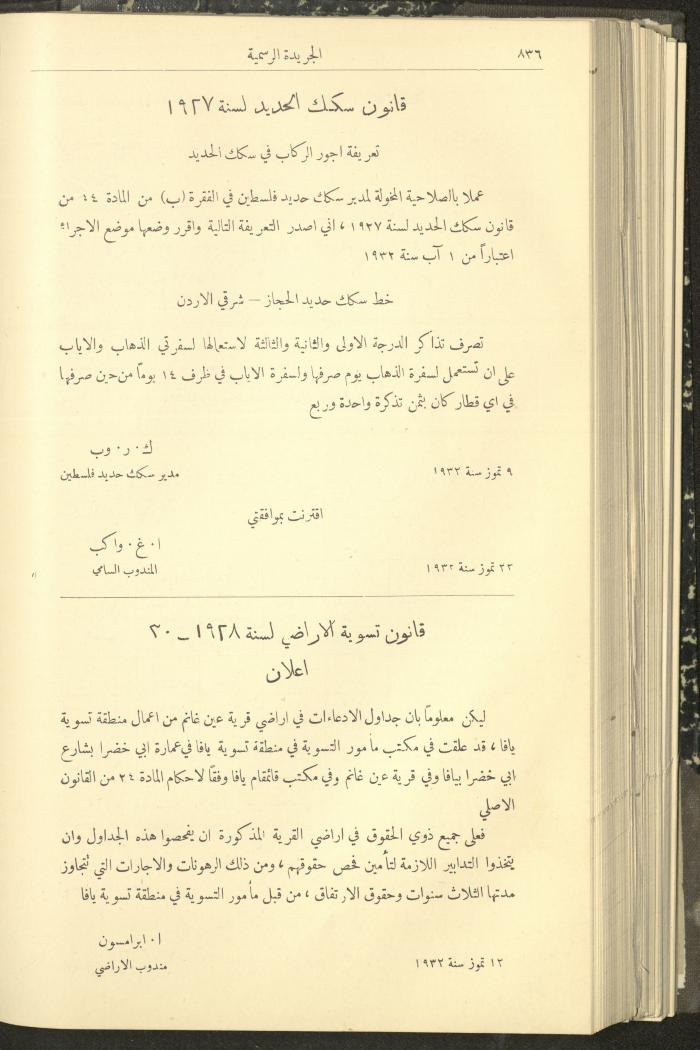 ٨٣٦
الجريدة الرسمية
قانون سكك الحديد لسنة ١٩٢٧
تعريفة اجور الركاب في سكك الحديد
عملا بالصلاحية المخولة لمدير سكك حديد فلسطين في الفقرة (ب) من المادة ٤٤ من
قانون سكك الحديد لسنة ١٩٢٧ ، اني اصدر التعريفة التالية واقرر وضعها موضع الاجراء
اعتباراً من ١ آب سنة ١٩٣٢
خط سكك حديد الحجاز – شرقي الاردن
تصرف تذاكر الدرجة الاولى والثانية والثالثة لاستعمالها لسفرتي الذهاب والاياب
على ان تستعمل لسفرة الذهاب يوم صرفها ولسفرة الاياب في ظرف ١٤ يوماً من حين صرفها
في اي قطار كان بثمن تذكرة واحدة وربع
ك ٠ ر ٠ وب
٩ تموز سنة ١٩٣٢
مدير سكك حديد فلسطين
اقترنت بموافقتي
ا ٠ غ ٠ واكب
٢٢ تموز سنة ١٩٣٢
المندوب السامي
قانون تسوية الاراضي لسنة ١٩٢٨ – ٣٠
اعلان
ليكن معلوماً بان جداول الادعاءات في اراضي قرية عين غانم من اعمال منطقة تسوية
يافا ، قد علقت في مكتب مأمور التسوية في منطقة تسوية يافا في عمارة ابي خضرا بشارع
ابي خضرا بيافا وفي قرية عين غانم وفي مكتب قائمقام يافا وفقاً لاحكام المادة ٢٤ من القانون
الاصلي
فعلى جميع ذوي الحقوق في اراضي القرية المذكورة ان يفحصوا هذه الجداول وان
يتخذوا التدابير اللازمة لتأمين فحص حقوقهم ، ومن ذلك الرهونات والاجارات التي تتجاوز
مدتها الثلاث سنوات وحقوق الارتفاق ، من قبل مأمور التسوية في منطقة تسوية يافا
ا ٠ ابرامسون
١٢ تموز سنة ١٩٣٢
مندوب الاراضي